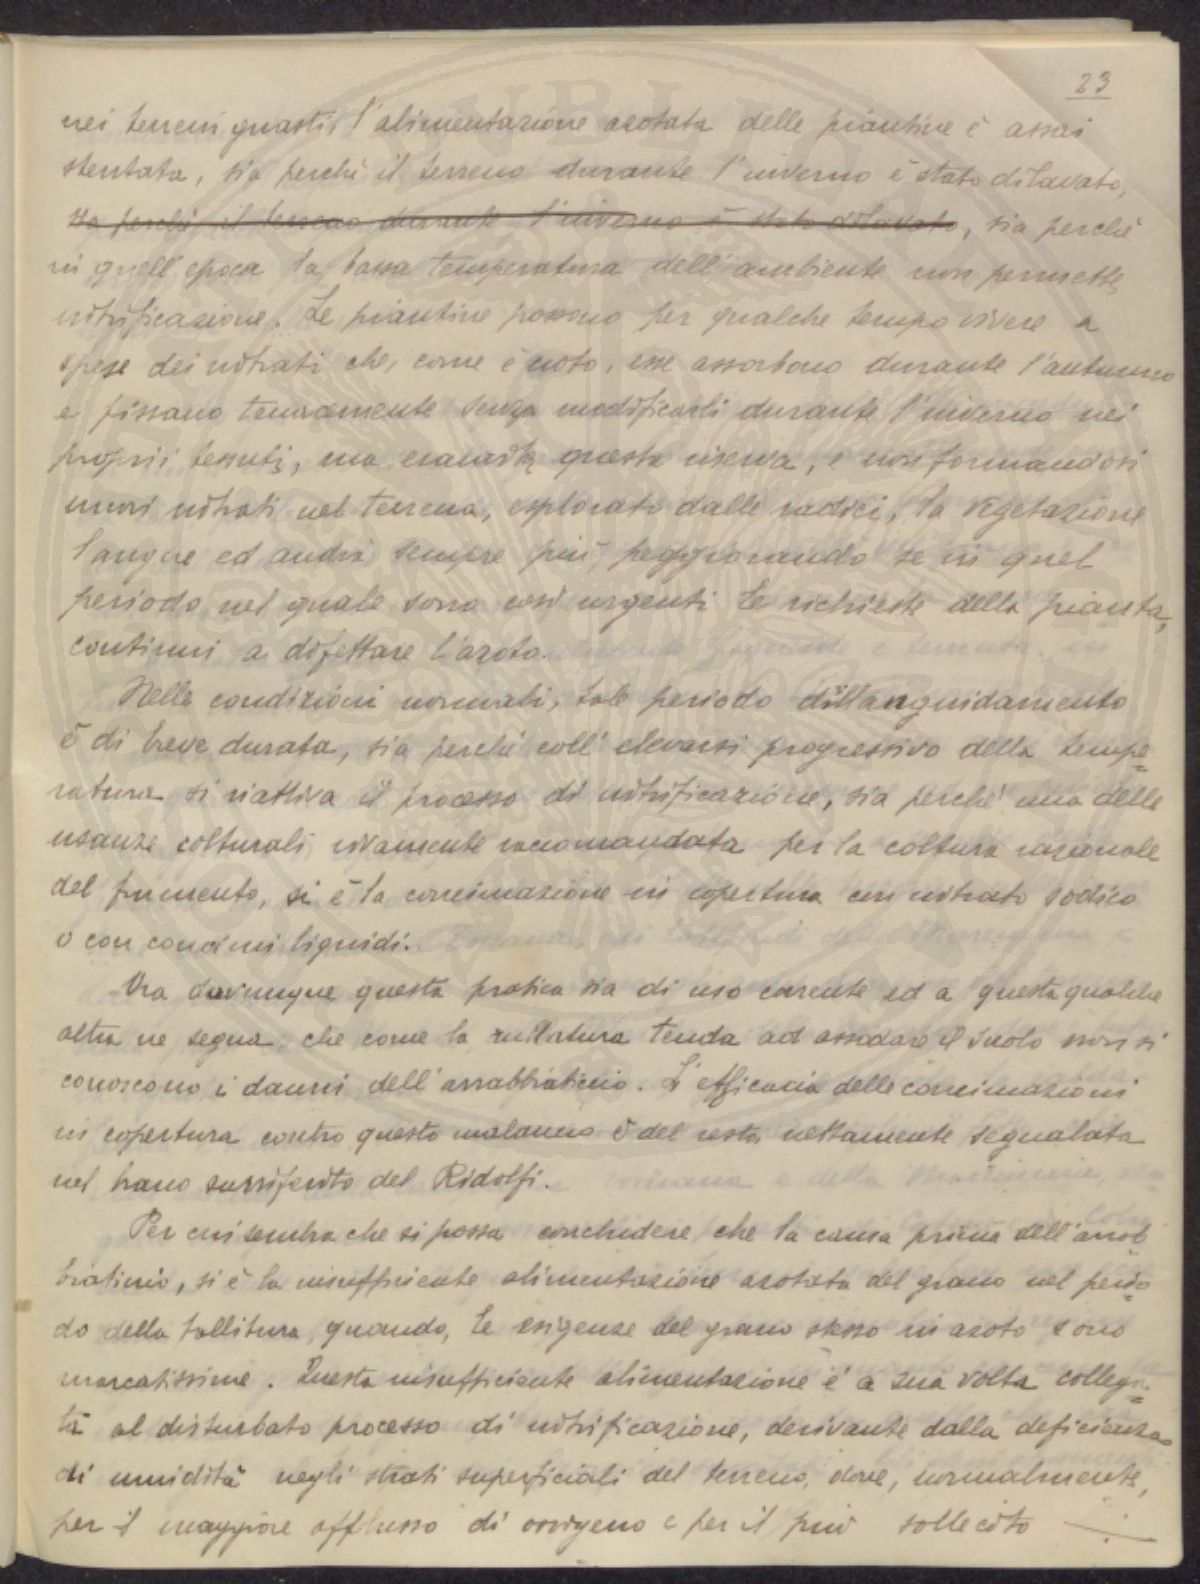 23
nei terreni guasti, l'alimentazione azotata delle piantine è assai
stentata, sia perchè il terreno durante l'inverno è stato dilavato,
sia perchè il terreno durante l'inverno è stato dilavato, sia perchè
in quell'epoca la bassa temperatura dell'ambiente non permette
nitrificazione. Le piantine possono per qualche tempo vivere a
spese dei nitrati che, come è noto, esse assorbono durante l'autunno
e fissano tenacemente senza modificarli durante l'inverno nei
proprii tessuti, ma esaurita questa riserva, e non formandosi
nuovi nitrati nel terreno, esplorato dalle radici, la vegetazione
langue ed andrà sempre più peggiorando se in quel
periodo nel quale sono così urgenti le richieste della pianta,
continui a difettare l'azoto.
Nelle condizioni normali, tale periodo d'illanguidamento
è di breve durata, sia perchè coll'elevarsi progressivo della tempe=
ratura si riattiva il processo di nitrificazione, sia perchè una delle
usanze colturali vivamente raccomandata per la coltura razionale
del frumento, si è la concimazione in copertura con nitrato sodico
o con concimi liquidi.
Ora dovunque questa pratica sia di uso corrente ed a questa qualche
altra ne segua, che come la rullatura tenda ad assodare il suolo non si
conoscono i danni dell'arrabbiaticcio. L'efficacia delle concimazioni
in copertura contro questo malanno è del resto nettamente segnalata
nel brano surriferito del Ridolfi.
Per cui sembra che si possa conchiudere che la causa prima dell'arrab
biaticcio, si è la insufficiente alimentazione azotata del grano nel perio=
do della tallitura, quando, le esigenze del grano stesso in azoto sono
marcatissime. Questa insufficiente alimentazione è a sua volta collega=
ta al disturbato processo di nitrificazione, derivante dalla deficienza
di umidità negli strati superficiali del terreno, dove, normalmente,
per il maggiore afflusso di ossigeno e per il più sollecito